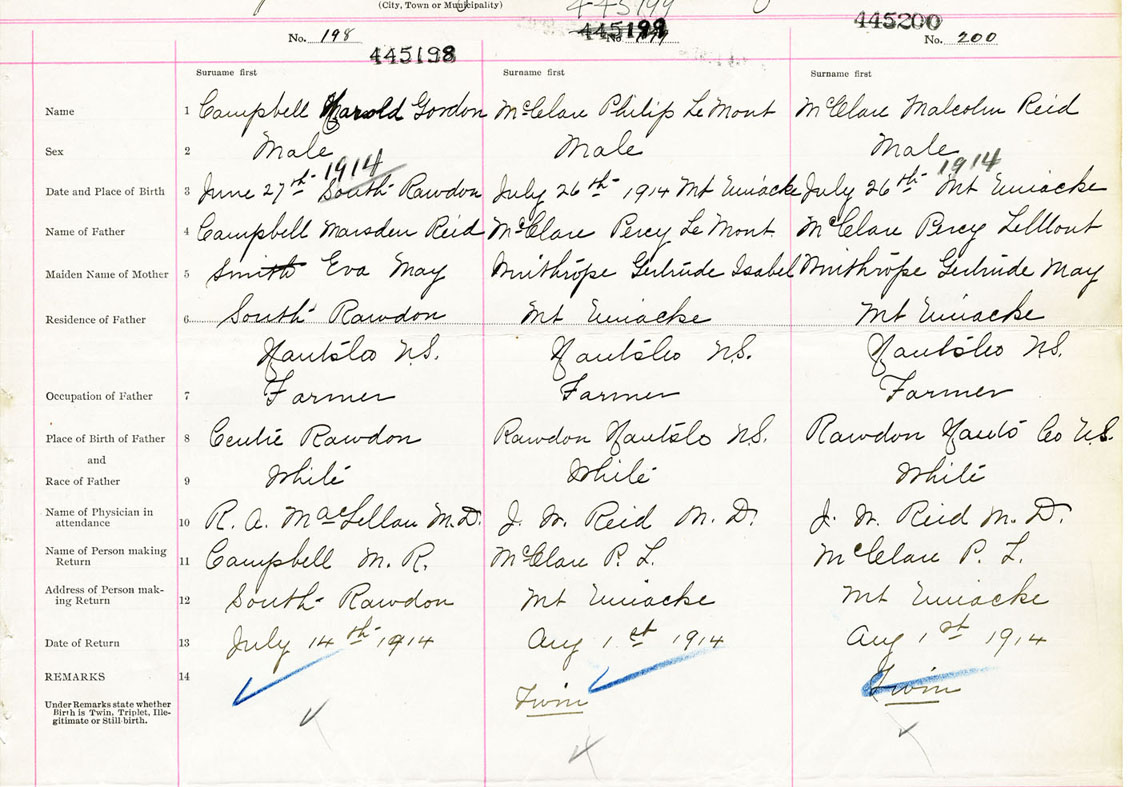 (City, Town or Municipality)
No. 198 445198 445199 No 199 445200 No. 200
Surname first Surname first Surname first
Name 1 Campbell Harold Gordon McClare Philip Le Mont McClare Malcolm Reid
Sex 2 Male Male Male
1914 1914
Date and Place of Birth 3 June 27th South Rawdon July 26th 1914 Mt Uniacke July 26th Mt Uniacke
Name of Father 4 Campbell Marsden Reid McClare Percy Le Mont McClare Percy LeMont
Maiden Name of Mother 5 Smith Eva May Winthrope Gertrude Isabel Winthrope Gertrude May
Residence of Father 6 South Rawdon Mt Uniacke Mt Uniacke
Hants Co N.S. Hants Co N.S. Hants Co N.S.
Occupation of Father 7 Farmer Farmer Farmer
Place of Birth of Father 8 Centre Rawdon Rawdon Hants Co N.S. Rawdon Hants Co N.S.
and
Race of Father 9 White White White
Name of Physician in
attendance 10 R. A. MacLellan M.D. J. W. Reid M. D. J. W. Reid M. D.
Name of Person making
Return 11 Campbell M. R. McClare P. L. McClare P. L.
Address of Person mak-
ing Return 12 South Rawdon Mt Uniacke Mt Uniacke
Date of Return 13 July 14th 1914 Aug 1st 1914 Aug 1st 1914
REMARKS 14 Twin Twin
Under Remarks state whether
Birth is Twin, Triplet, Ille-
gitimate or Still-birth.